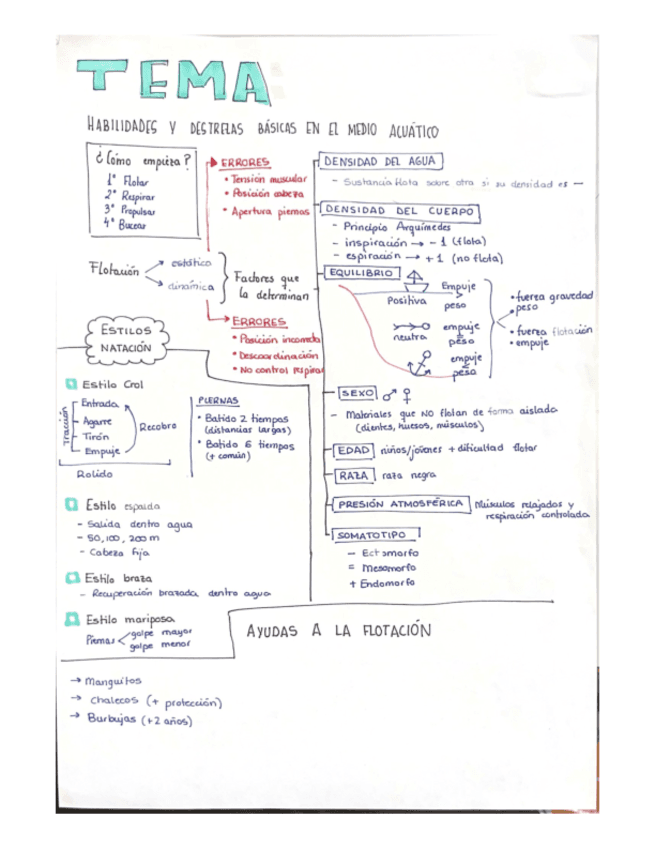 TEMA
HABILIDADES Y DESTREZAS BÁSICAS EN EL MEDIO ACUÁTICO
¿Cómo empieza?
1º Flotar
2º Respirar
3º Propulsar
4º Bucear
ERRORES
• Tensión muscular
• Posición cabeza
• Apertura piernas
Flotación
estática
dinámica
Factores que
la determinan
ERRORES
• Posición incorrecta
• Descoordinación
• No control respirar
DENSIDAD DEL AGUA
- Sustancia flota sobre otra si su densidad es —
DENSIDAD DEL CUERPO
- Principio Arquímedes
- inspiración → - 1 (flota)
- espiración → + 1 (no flota)
EQUILIBRIO
Positiva
Empuje
>
peso
neutra
empuje
=
peso
empuje
<
peso
• fuerza gravedad
• peso
• fuerza flotación
• empuje
SEXO ♂ ♀
- Materiales que NO flotan de forma aislada
(dientes, huesos, músculos)
EDAD niños/jóvenes + dificultad flotar
RAZA raza negra
PRESIÓN ATMOSFÉRICA Músculos relajados y
respiración controlada
SOMATOTIPO
- Ectomorfo
= Mesomorfo
+ Endomorfo
ESTILOS
NATACIÓN
Estilo Crol
Tracción
Entrada
- Agarre
- Tirón
Empuje
Recobro
Rolido
PIERNAS
• Batido 2 tiempos
(distancias largas)
• Batido 6 tiempos
(+ común)
Estilo espalda
- Salida dentro agua
- 50, 100, 200 m
- Cabeza fija
Estilo braza
- Recuperación brazada dentro agua
Estilo mariposa
Piernas
golpe mayor
golpe menor
AYUDAS A LA FLOTACIÓN
→ Manguitos
→ Chalecos (+ protección)
→ Burbujas (+2 años)